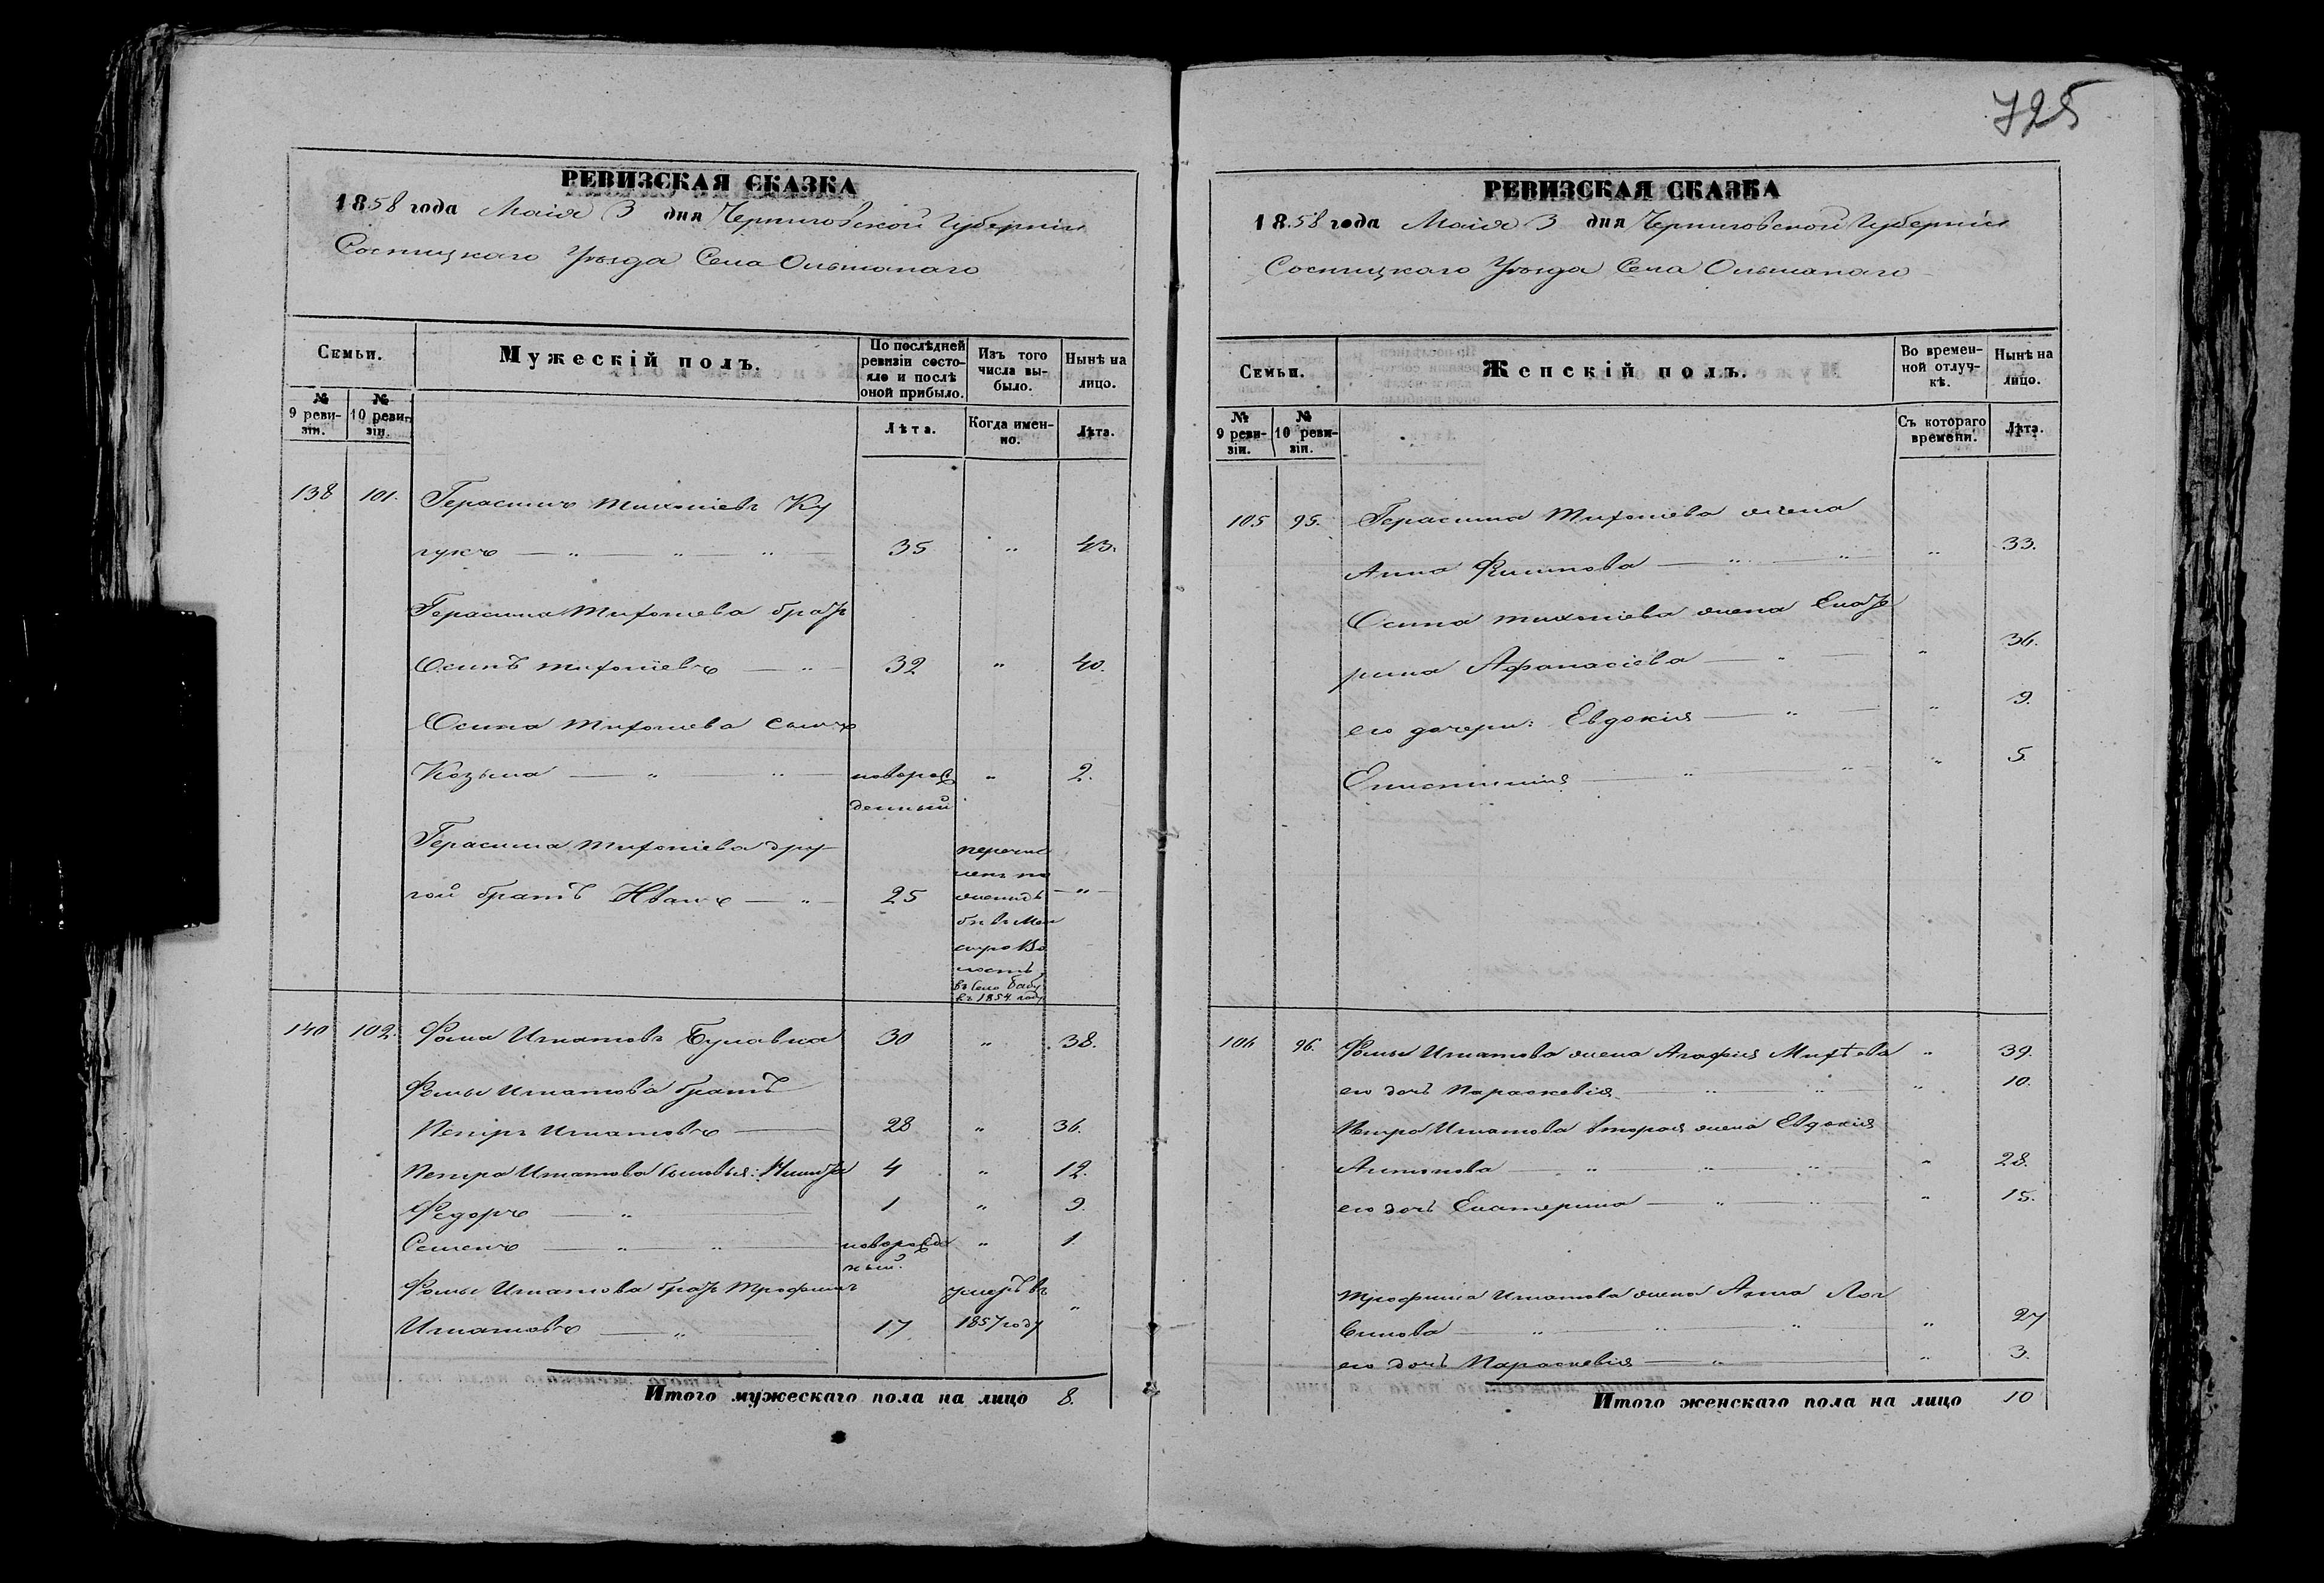 725
РЕВИЗСКАЯ СКАЗКА
1858 года Маія 3 дня Черниговской Губерніи
Сосницкаго Уѣзда Села Ольшанаго
Семьи.
Мужескій полъ.
По послѣдней ревизіи состояло и послѣ оной прибыло.
Изъ того числа выбыло.
Нынѣ на лицо.
№ 9 ревизіи.
№ 10 ревизіи.
Лѣта.
Когда именно.
Лѣта.
138 101. Герасимъ Тихоніевъ Ку
35 " 43.
Герасима Тихоніева братъ
Осипъ Тихоніевъ — " 32 " 40.
Осипа Тихоніева сынъ
Козьма — " " новорож " 2.
денный
Герасима Тихоніева дру
гой братъ Иванъ — " — 25 — " —
въ 1854 году
140 102. Фома Игнатовъ Булавка 30 " 38.
Фомы Игнатова братъ
Петръ Игнатовъ — 28 " 36.
Петра Игнатова сыновья: Никита 4 " 12.
Федоръ — " 1 " 9.
Семенъ — " " новорожде " 1.
нный.
Фомы Игнатова братъ Трофимъ умеръ въ
Игнатовъ — " 17 1857 году "
Итого мужескаго пола на лицо 8.
РЕВИЗСКАЯ СКАЗКА
1858 года Маія 3 дня Черниговской Губерніи
Сосницкаго Уѣзда Села Ольшанаго
Семьи.
Женскій полъ.
Во временной отлучкѣ.
Нынѣ на лицо.
№ 9 ревизіи.
№ 10 ревизіи.
Съ котораго времени.
Лѣта.
105 95. Герасима Тихоніева жена
Анна Филипова — " " " 33.
Осипа Тихоніева жена Екате
рина Афанасіева — " " 36.
его дочери: Евдокія — " " 9.
" " " 5.
106 96. Фомы Игнатова жена Агафія Михѣева " 39.
его дочь Параскевія " " " 10.
Петра Игнатова вторая жена Евдокія
Антонова — " " " " 28.
его дочь Екатерина — " " " 15.
Трофима Игнатова жена Анна Лог
винова " " " " 27
его дочь Параскевія — " " 3.
Итого женскаго пола на лицо 10